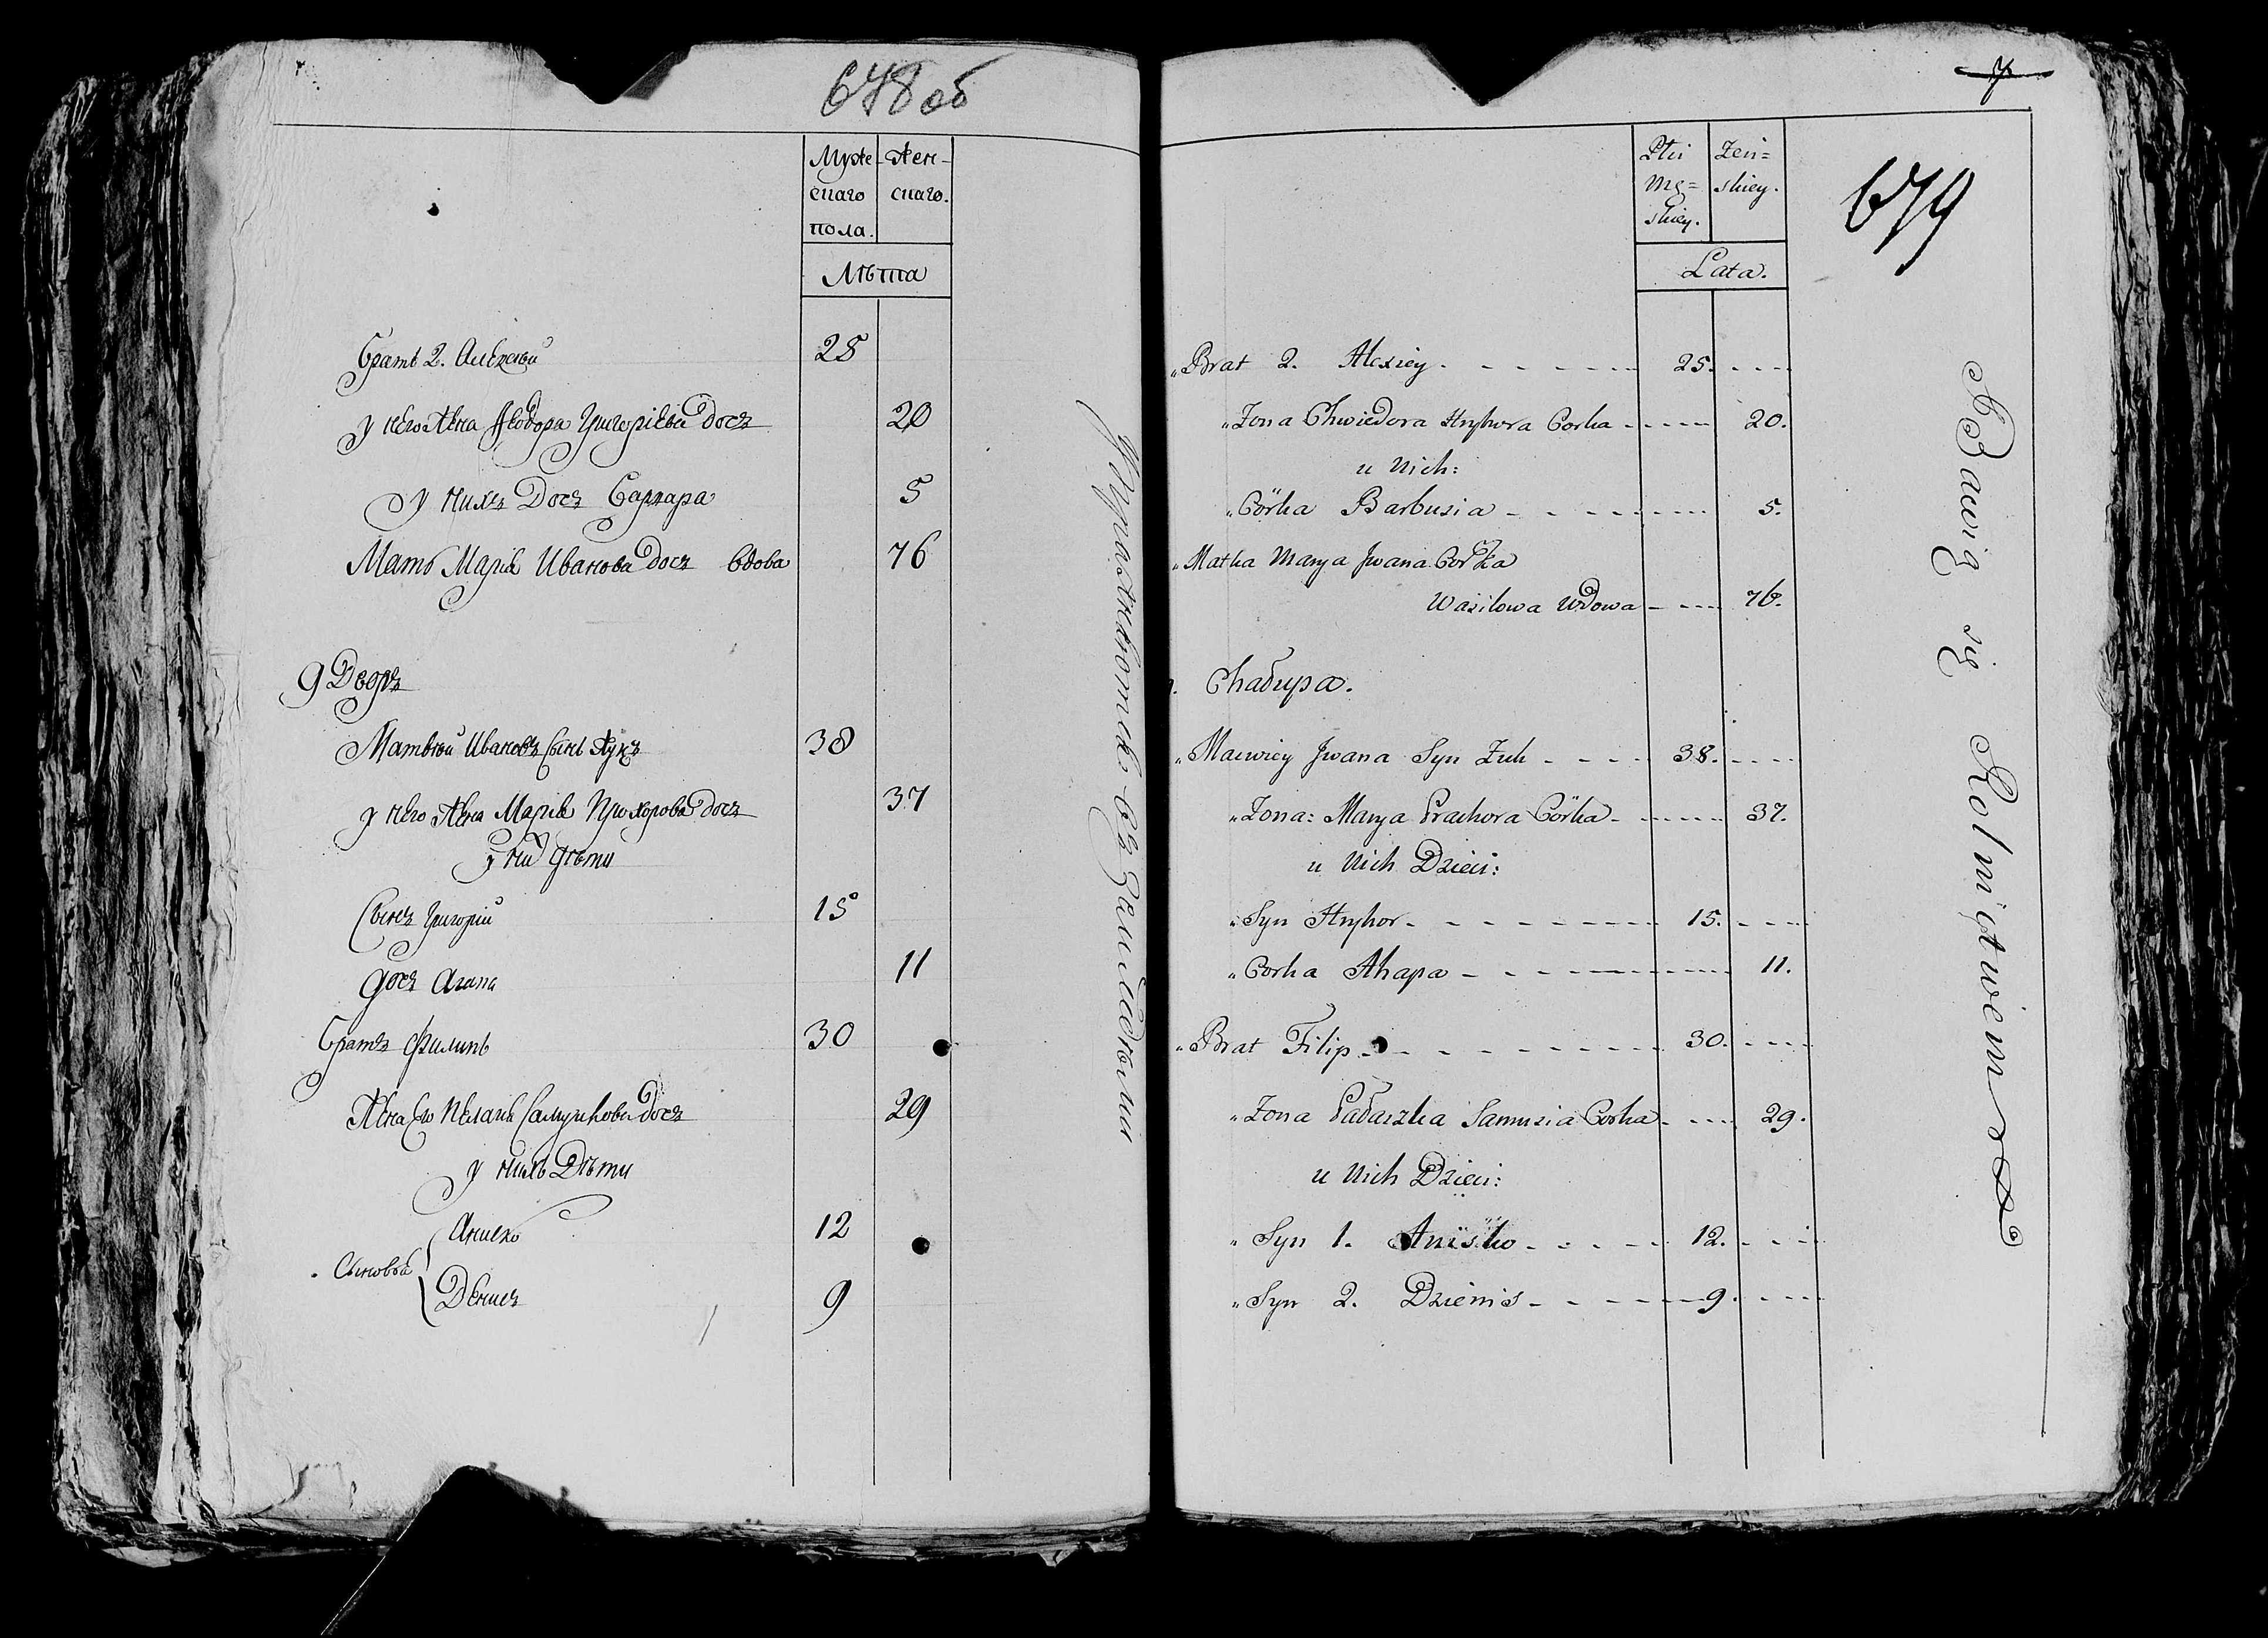 678 об
Муже-
скаго
пола.
Жен-
скаго.
Лѣта
Братъ 2. Алексѣй 25
у него Жена Ѳеодора Григорьева дочь 20
у нихъ Дочь Варвара 5
Мать Марія Иванова дочь вдова 76
9 Дворъ
Матвѣй Ивановъ Сынъ Жукъ 38
у него Жена Марія Прохорова дочь 37
у них дѣти
Сынъ Григорій 15
дочь Агапа 11
Братъ Филипъ 30
Жена Его Пелагія Самуйлова дочь 29
у нихъ Дѣти
Сыновья
Анисько 12
Денисъ 9
въ Земледѣлии
7
679
Płci
mę=
skiey.
Żeń=
skiey.
Lata.
„Brat 2. Alexiey. 25.
„Żona Chwiedora Hryhora Corka 20.
u Nich:
„Córka Barbusia 5.
„Matka Marya Jwana Corka
Wasilowa Wdowa 76.
9. Chałupa.
„Maćwiey Jwana Syn Żuk 38.
„Żona: Marya Prachora Córka 37.
u Nich Dzieci:
„Syn Hryhor 15.
„Corka Ahapa 11.
„Brat Filip 30.
„Żona Pałaszka Samusia Corka 29.
u Nich Dzieci:
„Syn 1. Aniśko 12.
„Syn 2. Dzienis 9.
Bawią się Rolnictwem